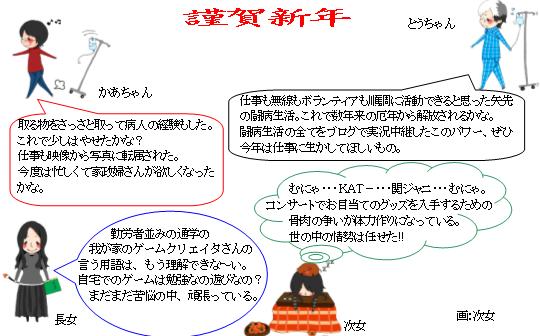 謹賀新年
とうちゃん
かあちゃん
取る物をさっさと取って病人の経験もした。
これで少しはやせたかな？
仕事も映像から写真に転属された。
今度は忙しくて家政婦さんが欲しくなった
かな。
仕事も無線もボランティアも順調に活動できると思った矢先
の闘病生活。これで数年来の厄年から解放されるかな。
闘病生活の全てをブログで実況中継したこのパワー、ぜひ
今年は仕事に生かしてほしいもの。
むにゃ・・・KAT－・・・関ジャニ・・・むにゃ。
コンサートでお目当てのグッズを入手するための
骨肉の争いが体力作りになっている。
世の中の情勢は任せた!!
勤労者並みの通学の
我が家のゲームクリェイタさんの
言う用語は、もう理解できな～い。
自宅でのゲームは勉強なの遊びなの？
まだまだ苦悩の中、頑張っている。
長女
次女
画：次女